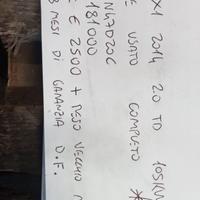 X1 2014 20 TD 105KW
E USATO COMPLETO
N47D20C
181000
€ 2500 + RESO VECCHIO
3 MESI DI GARANZIA O.F.